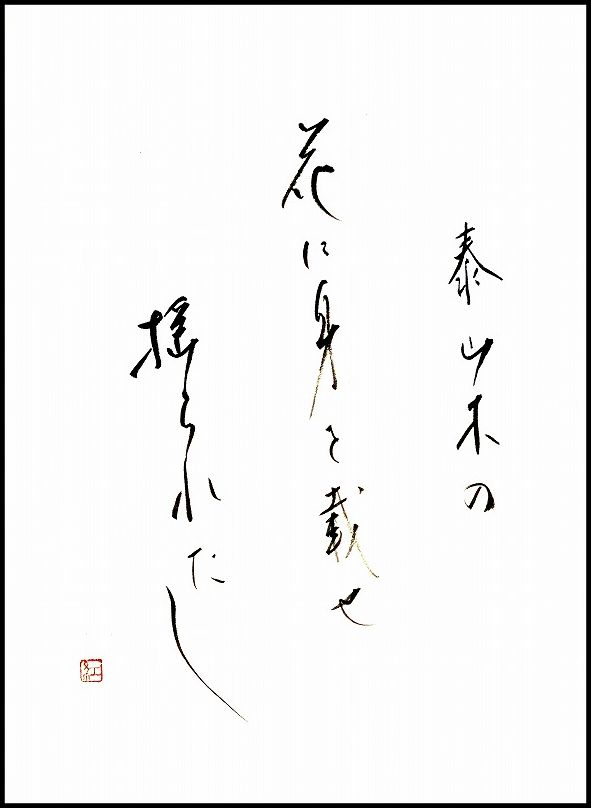 泰山木の
花に身を載せ
揺られたし
紅